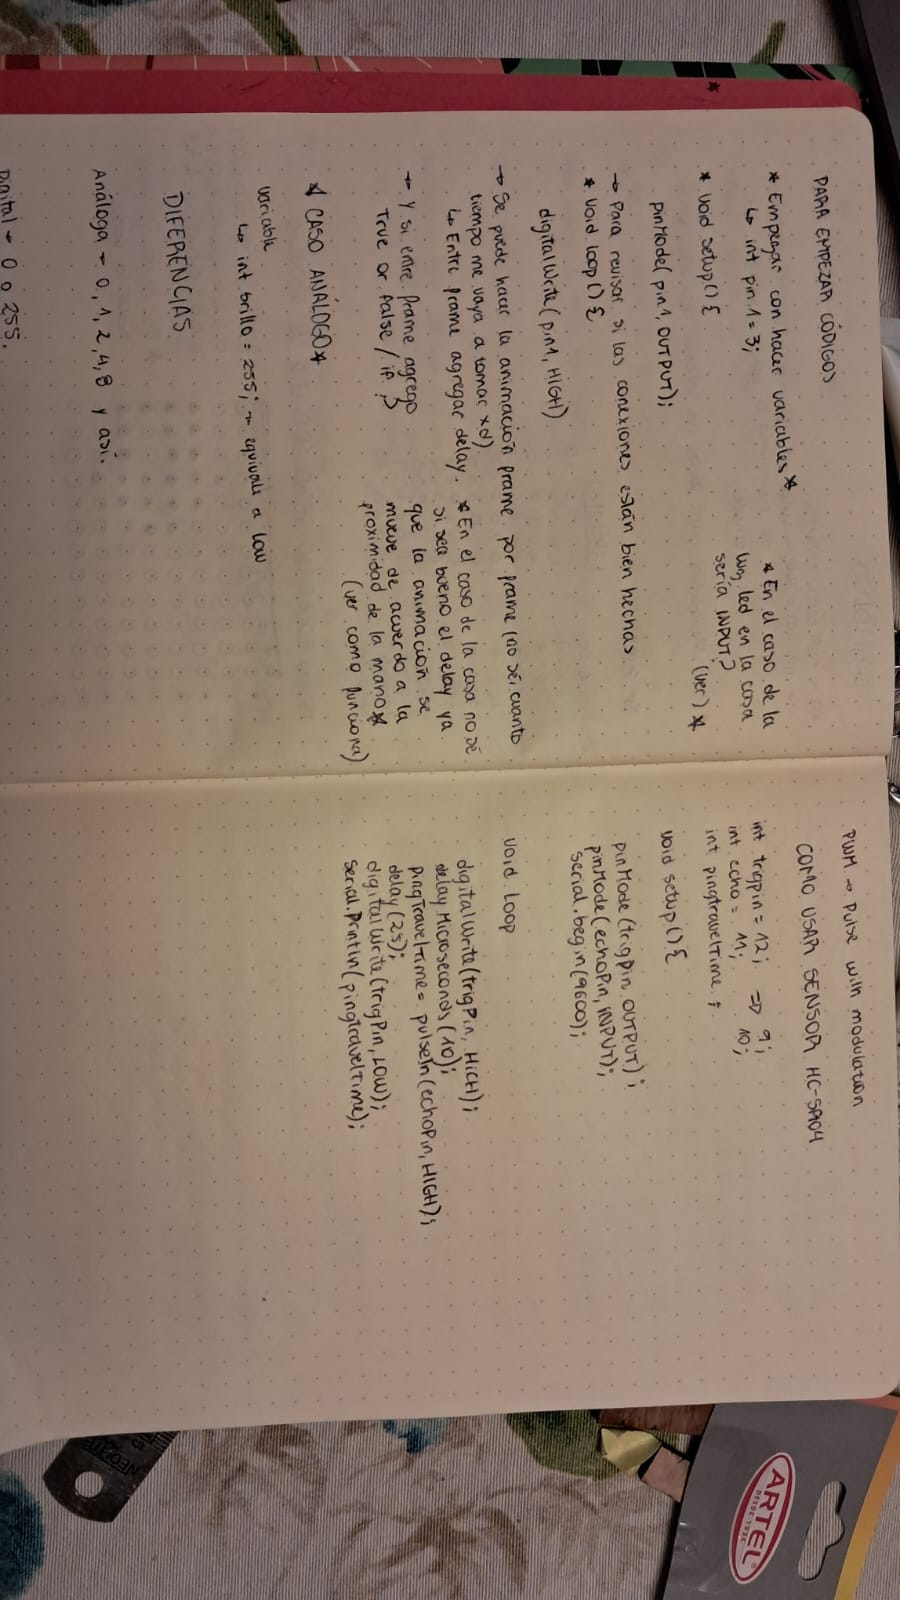 PARA EMPEZAR CÓDIGOS
* Empezar con hacer variables *
↳ int pin 1 = 3;
* void setup() {
pinMode( pin 1, OUTPUT);
* En el caso de la
luz led en la casa
sería INPUT?
(ver) *
→ Para revisar si las conexiones están bien hechas
* void loop() {
digitalWrite( pin1, HIGH)
→ Se puede hacer la animación frame por frame (no sé, cuanto
tiempo me vaya a tomar xd)
↳ Entre frame agregar delay.
→ Y si entre frame agrego
True or False / if ?
* En el caso de la casa no sé
si sea bueno el delay ya
que la animación se
mueve de acuerdo a la
proximidad de la mano *
(ver como funciona)
* CASO ANÁLOGO *
variable
↳ int brillo = 255; → equivale a low
DIFERENCIAS
Análoga → 0, 1, 2, 4, 8 y así.
Digital → 0 o 255.
PWM → Pulse with modulation
COMO USAR SENSOR HC-SR04
int trigpin = 12; => 9;
int echo = 11; 10;
int pingtravelTime ;
void setup() {
pinMode (trigPin OUTPUT) ;
pinMode( echoPin, INPUT);
Serial.begin (9600);
void loop
digitalWrite (trigPin, HIGH);
delay Microseconds (10);
pingTravelTime = pulseIn (echoPin, HIGH);
delay (25);
digitalWrite (trigPin, LOW);
Serial.Println (pingtravelTime);
ARTEL
DESDE 1932